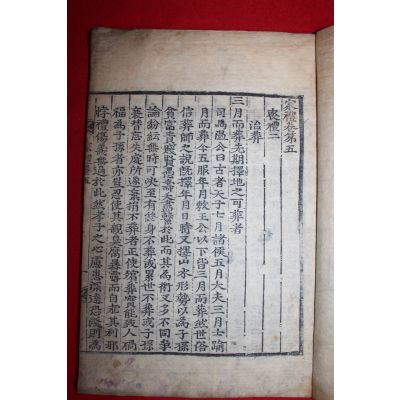 家禮卷第五
喪禮二
治葬
三月而葬先期擇地之可葬者
司馬溫公曰古者天子七月諸侯五月大夫三月士踰
月而葬今五服年月敕王公以下皆三月而葬然世俗
信葬師之說旣擇年月日時又擇山水形勢以爲子孫
貧富貴賤賢愚壽夭盡繫於此而其爲術又多不同爭
論紛紜無時可決至有終身不葬或累世不葬或子孫
衰替忘失處所遂棄捐不葬者正使殯葬實能致人禍
福爲子孫者亦豈忍使其親臭腐暴露而自求其利耶
悖禮傷義無過於此然孝子之心慮患深遠恐淺則爲